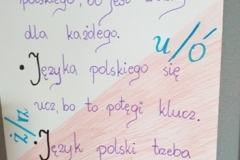 polskiego, bo jest
dla każdego.
u/ó
• Języka polskiego się
ucz, bo to potęgi klucz.
rz/ż
• Język polski trzeba